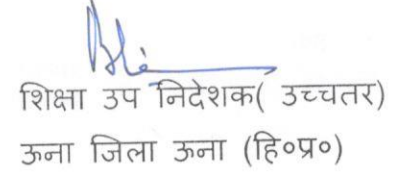 शिक्षा उप निदेशक( उच्चतर)
ऊना जिला ऊना (हि०प्र०)